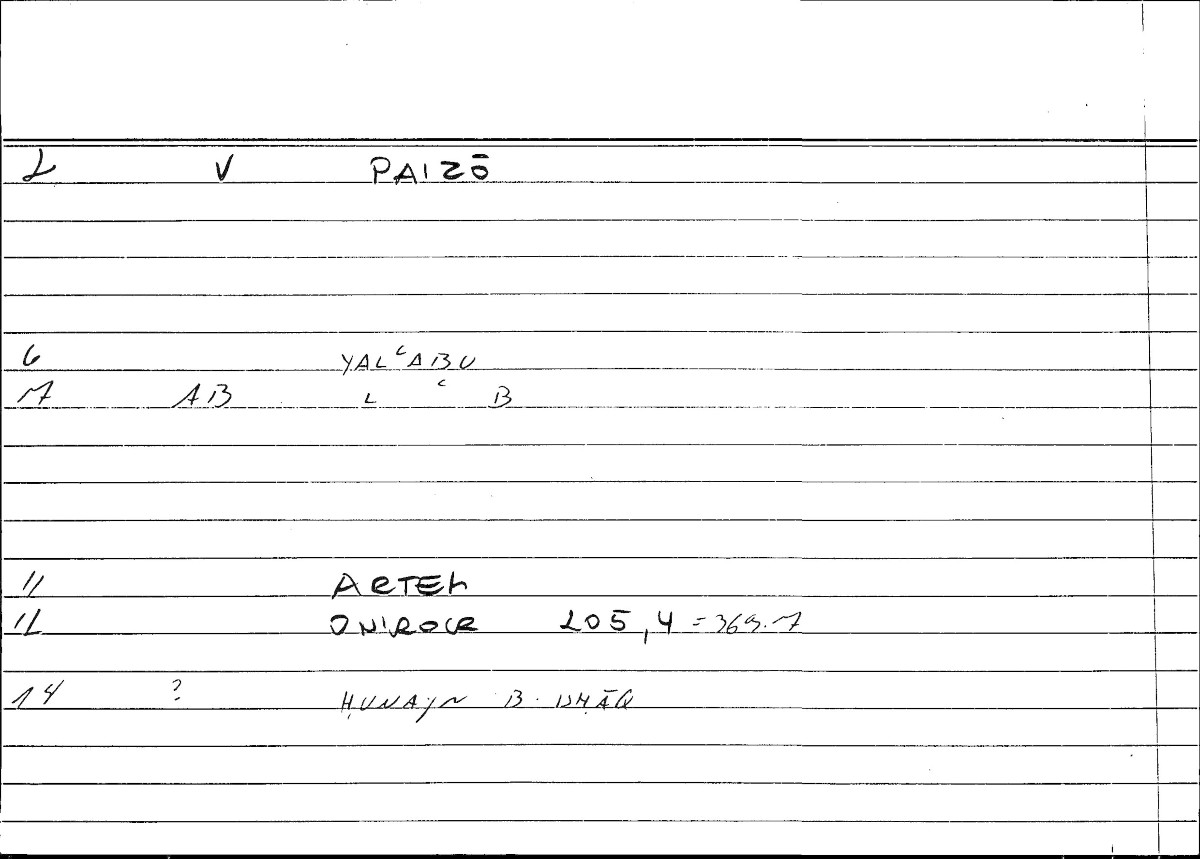 2 V PAIZŌ
6 YALʿABU
7 AB L ʿ B
11 ARTEM
12 ONIROCR 205,4 = 369.7
14 ? ḤUNAYN B. ISḤĀQ